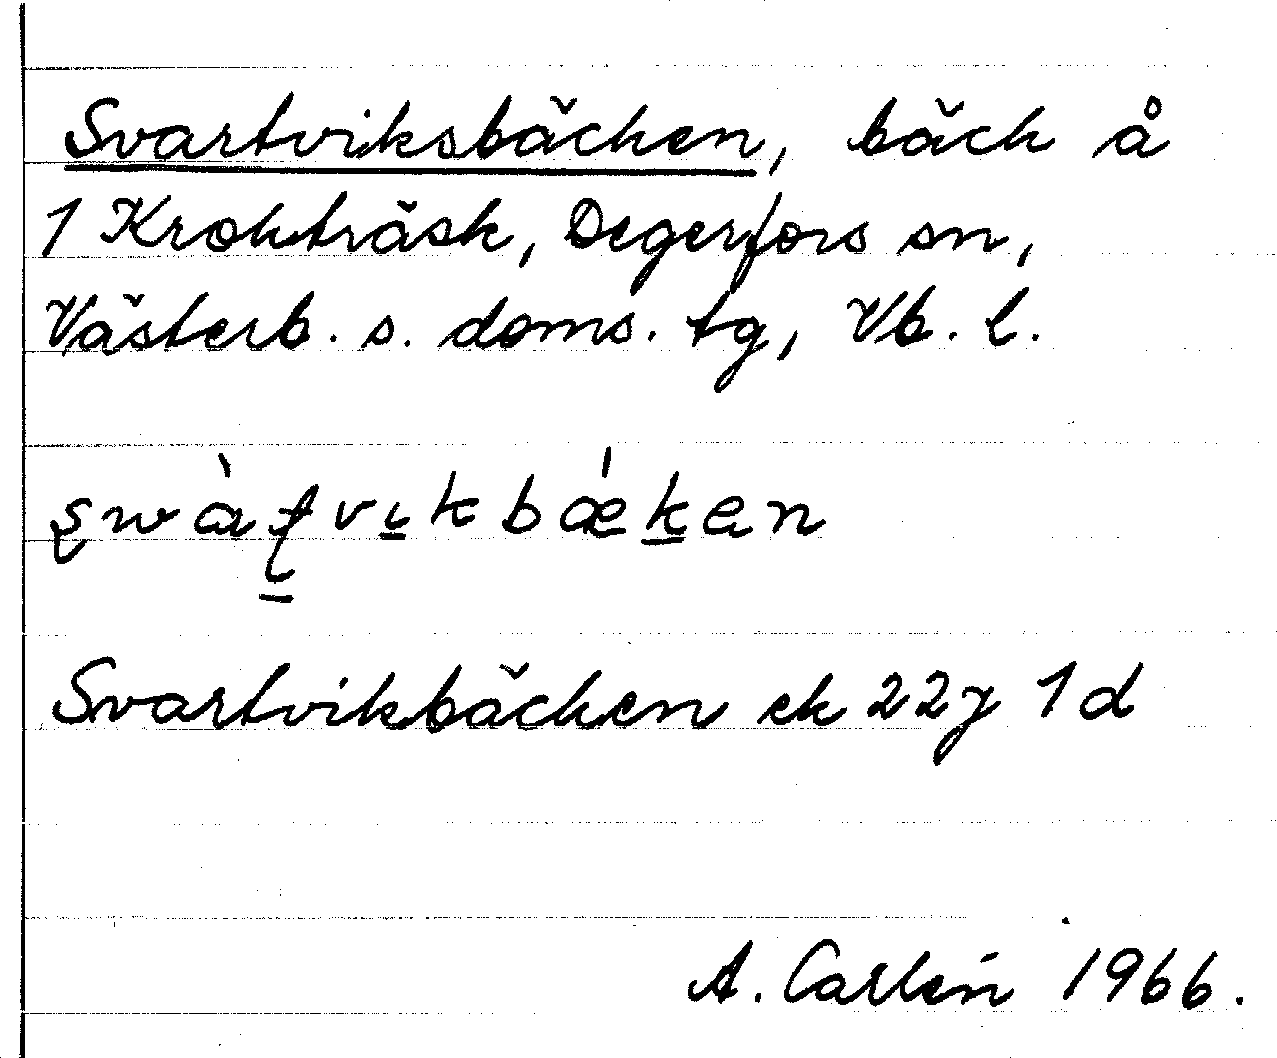 Svartviksbäcken, bäck å
1 Krokträsk, Degerfors sn,
Västerb. s. doms. tg, Vb. l.
s̨wàʈvikbǽken
Svartvikbäcken ek 22J 1d
A. Carlén 1966.